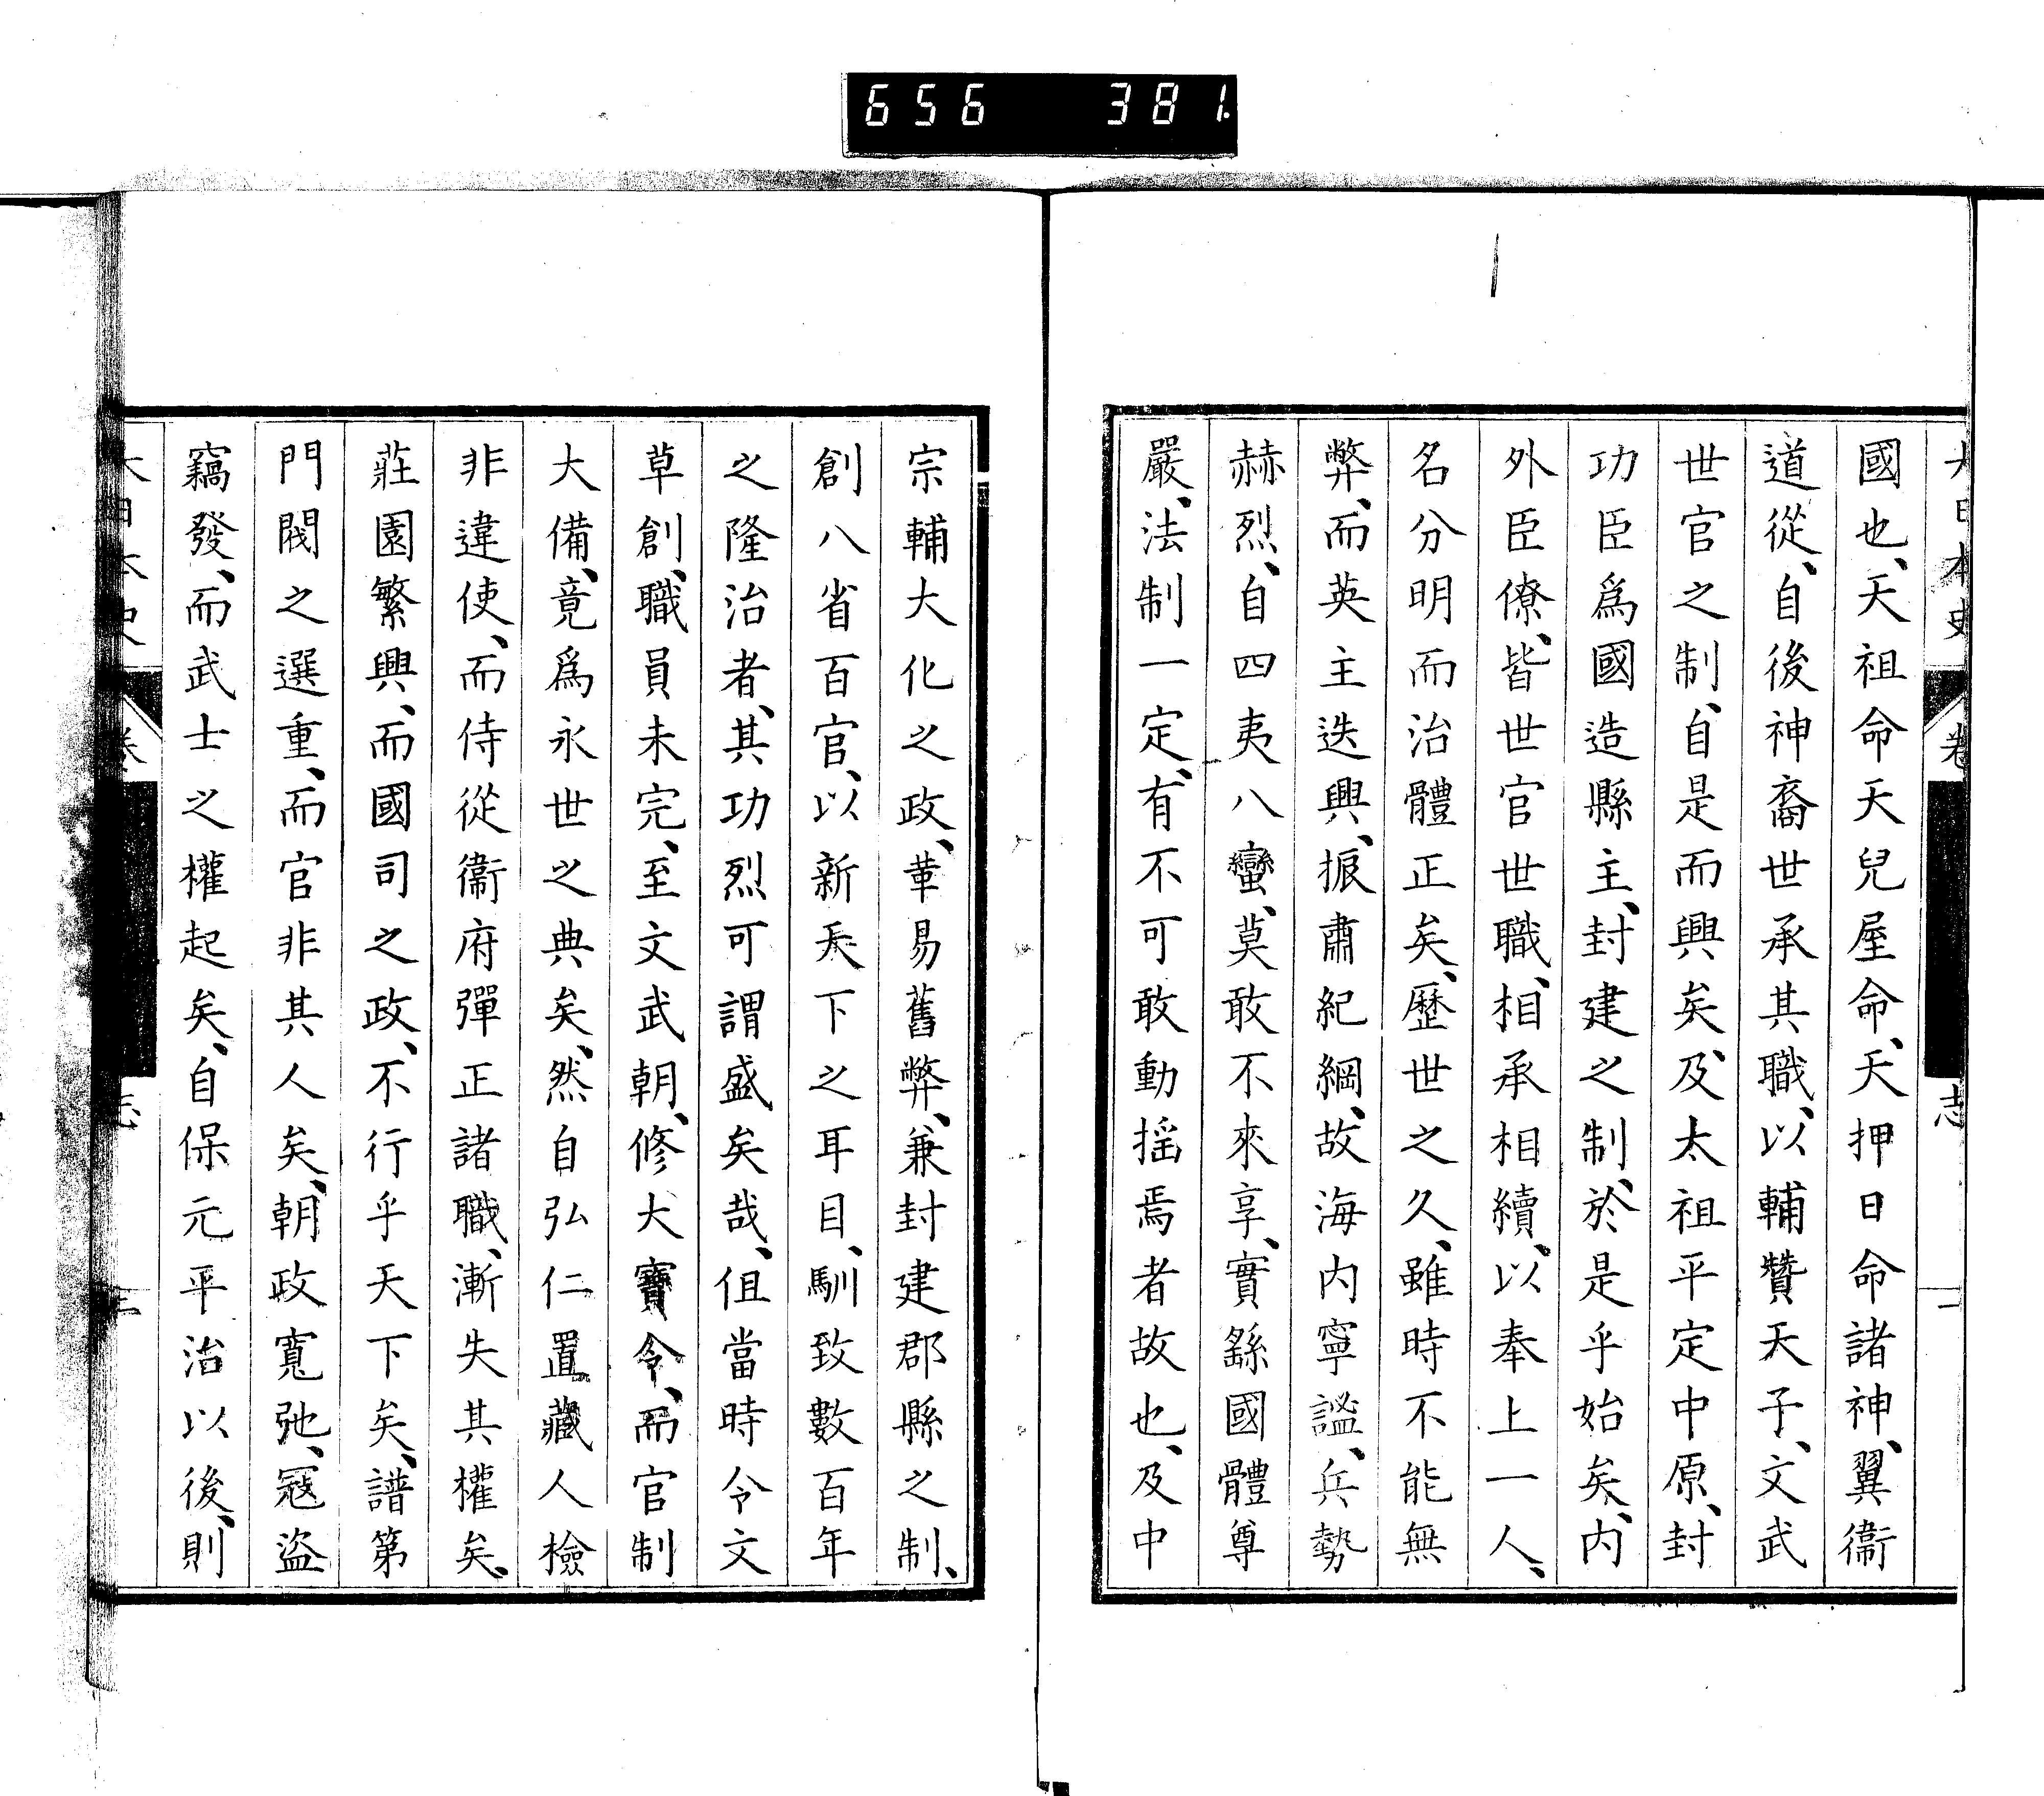 656 381
大日本史 卷 志
國也、天祖命天兒屋命、天押日命諸神、翼衞
道從、自後神裔世承其職、以輔贊天子、文武
世官之制、自是而興矣、及太祖平定中原、封
功臣爲國造縣主、封建之制、於是乎始矣、内
外臣僚、皆世官世職、相承相續、以奉上一人、
名分明而治體正矣、歷世之久、雖時不能無
弊、而英主迭興、振肅紀綱、故海内寧謐、兵勢
赫烈、自四夷八蠻、莫敢不來享、實繇國體尊
嚴、法制一定、有不可敢動搖焉者故也、及中
宗輔大化之政、革易舊弊、兼封建郡縣之制、
創八省百官、以新天下之耳目、馴致數百年
之隆治者、其功烈可謂盛矣哉、但當時令文
草創、職員未完、至文武朝、修大寶令、而官制
大備、竟爲永世之典矣、然自弘仁置藏人檢
非違使、而侍從衞府彈正諸職、漸失其權矣、
莊園繁興、而國司之政、不行乎天下矣、譜第
門閥之選重、而官非其人矣、朝政寬弛、寇盜
竊發、而武士之權起矣、自保元平治以後、則
大日本史 卷 志 三